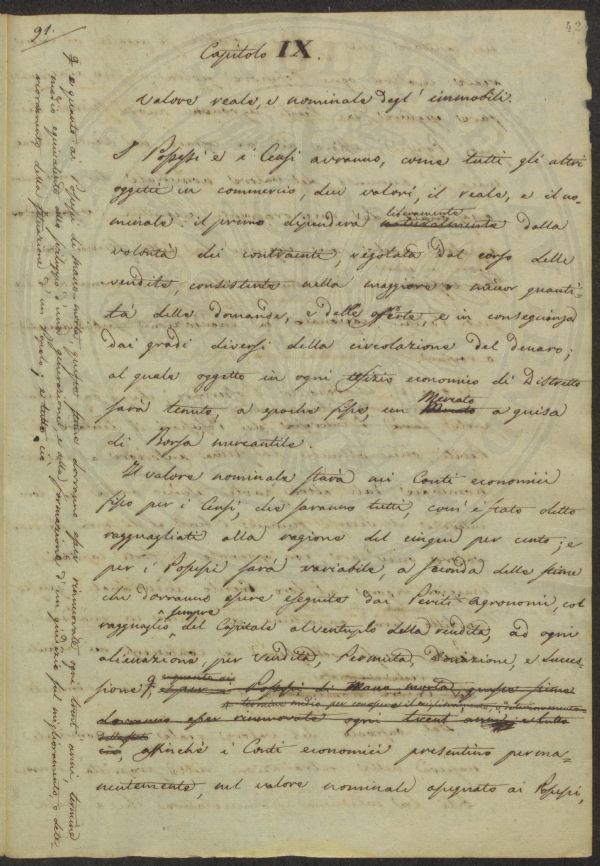 91.
42
Capitolo IX.
Valore reale, e nominale degl' immobili.
I Possessi e i Censi avranno, come tutti gli altri
oggetti in commercio, due valori, il reale, e il no-
minale. il primo dipenderà liberamente naturalmente dalla
volontà dei contraenti, regolata dal corso delle
vendite, consistente nella maggiore o minor quanti-
tà delle domande, e delle offerte, e in conseguenza
dai gradi diversi della circolazione del denaro;
al quale oggetto in ogni Offizio economico di Distretto
sarà tenuto, a epoche fisse, un Mercato a guisa
di Borsa mercantile.
Il valore nominale starà nei Conti economici
fisso per i Censi, che saranno tutti, com' è stato detto
ragguagliati alla ragione del cinque per cento; e
per i Possessi sarà variabile, a seconda delle stime
che dovranno essere eseguite dai Periti Agronomi, col
ragguaglio sempre del Capitale al ventuplo della rendita, ad ogni
alienazione, per vendita, Permuta, Donazione, e Succes-
sione, e quanto ai e per i Possessi di Mano morta, queste stime
dovranno esser rinnovate ogni trent' anni, e tutto
ciò, affinchè i Conti economici presentino perma-
nentemente, nel valore nominale assegnato ai Possessi,
e quanto ai Possessi di mano-morta, queste stime dovranno esser rinnovate ogni trent' anni, termine
medio equivalente allo sviluppo d'una generazione, e alla formazione d'un giudizio sul miglioramento, o dete-
rioramento della situazione d'un fondo; e tutto ciò